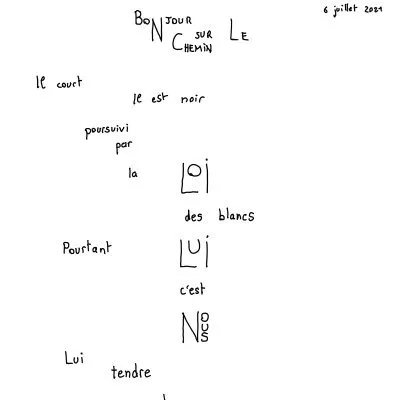 6 juillet 2021
BONJOUR SUR LE CHEMIN
Il court
Il est noir
poursuivi
par
la LOi
des blancs
Pourtant LUi
c'est
NOUS
Lui
tendre